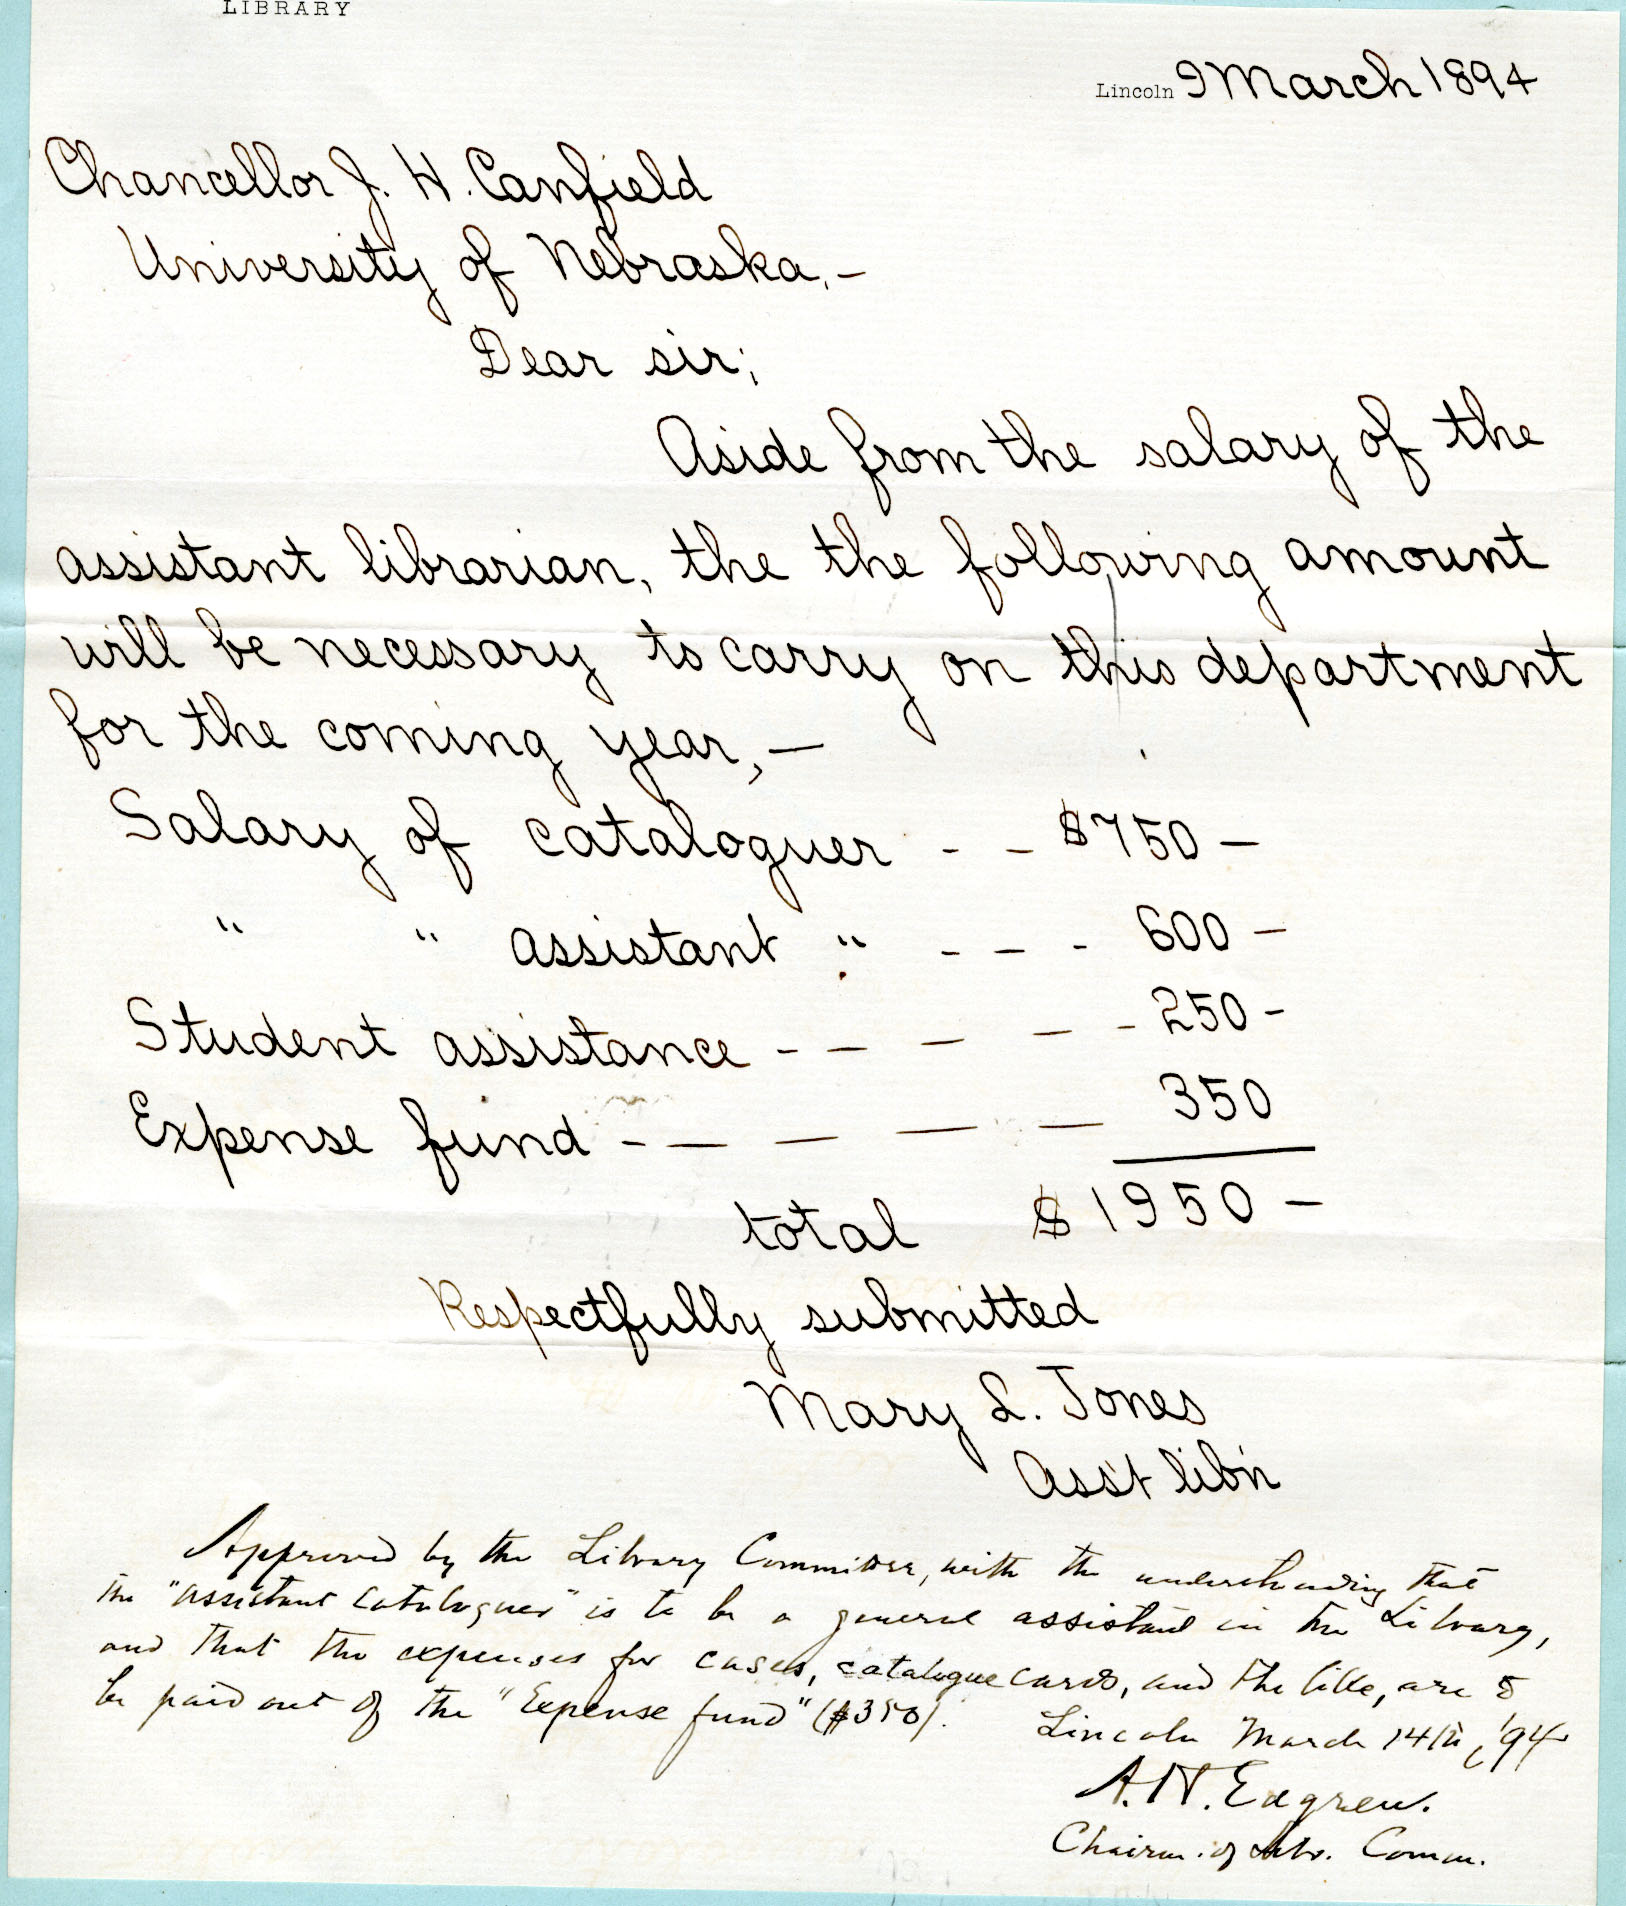 LIBRARY
Lincoln 9 March 1894
Chancellor J. H. Canfield
University of Nebraska,—
Dear sir;
Aside from the salary of the
assistant librarian, the the following amount
will be necessary to carry on this department
for the coming year,—
Salary of cataloguer - - $750 —
" " assistant " - - - 600 —
Student assistance - - - - - 250 -
Expense fund - - - - - 350
total $1950 —
Respectfully submitted
Mary L. Jones
Ass't lib'n
Approved by the Library Committee, with the understanding that
the "assistant cataloguer" is to be a general assistant in the Library,
and that the expenses for cases, catalogue cards, and the like, are to
be paid out of the "Expense fund" ($350).
Lincoln March 14th, '94
A. H. Edgren.
Chairm. of Libr. Comm.